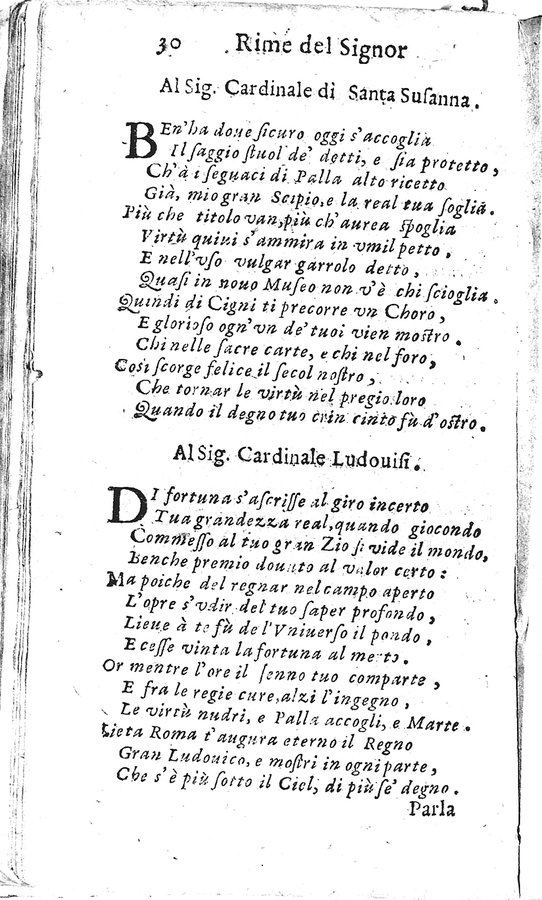 30 Rime del Signor
Al Sig. Cardinale di Santa Suſanna.
BEn'ha doue ſicuro oggi s'accoglia
Il ſaggio ſtuol de' dotti, e ſia protetto,
Ch'à i ſeguaci di Palla alto ricetto
Già, mio gran Scipio, e la real tua ſoglia.
Più che titolo van, più ch'aurea ſpoglia
Virtù quiui s'ammira in vmil petto,
E nell'vſo vulgar garrolo detto,
Quaſi in nouo Muſeo non v'è chi ſcioglia.
Quindi di Cigni ti precorre vn Choro,
E glorioſo ogn'vn de' tuoi vien moſtro.
Chi nelle ſacre carte, e chi nel foro,
Coſi ſcorge felice il ſecol noſtro,
Che tornar le virtù nel pregio loro
Quando il degno tuo crin cinto fù d'oſtro.
Al Sig. Cardinale Ludouiſi.
DI fortuna s'aſcriſſe al giro incerto
Tua grandezza real, quando giocondo
Commeſſo al tuo gran Zio ſi vide il mondo,
Benche premio douuto al valor certo:
Ma poiche del regnar nel campo aperto
L'opre s'vdir del tuo ſaper profondo,
Lieue à te fù de l'Vniuerſo il pondo,
E ceſſe vinta la fortuna al merto.
Or mentre l'ore il ſenno tuo comparte,
E fra le regie cure, alzi l'ingegno,
Le virtù nudri, e Palla accogli, e Marte.
Lieta Roma t'augura eterno il Regno
Gran Ludouico, e moſtri in ogni parte,
Che s'è più ſotto il Ciel, di più ſe' degno.
Parla